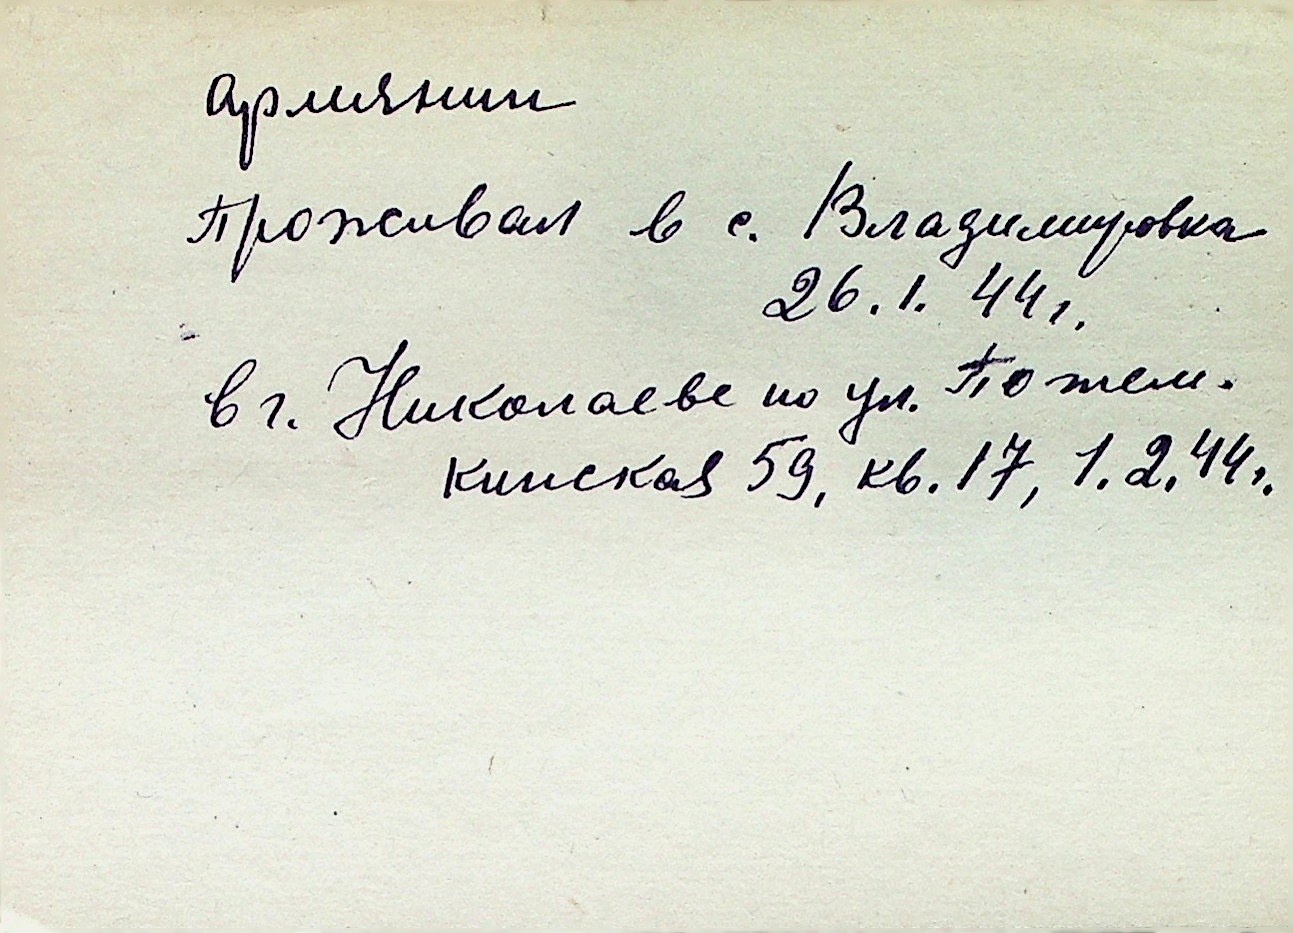 армянин
Проживал в с. Владимировка
26.1.44г.
в г. Николаеве по ул. Потем-
кинская 59, кв. 17, 1.2.44г.